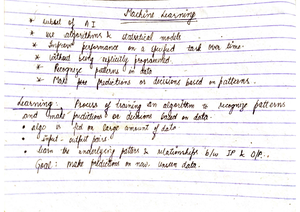 Machine Learning
* subset of AI
* use algorithms & statistical models
* Improve performance on a specified task over time.
* without being explicitly programmed.
* Recognize patterns in data
* Make predictions or decisions based on patterns.
Learning: Process of training an algorithm to recognize patterns
and make predictions or decisions based on data.
• algo is fed on large amount of data
• input-output pairs
• learn the underlying patterns & relationships b/w IP & O/P.
Goal: make predictions on new unseen data.